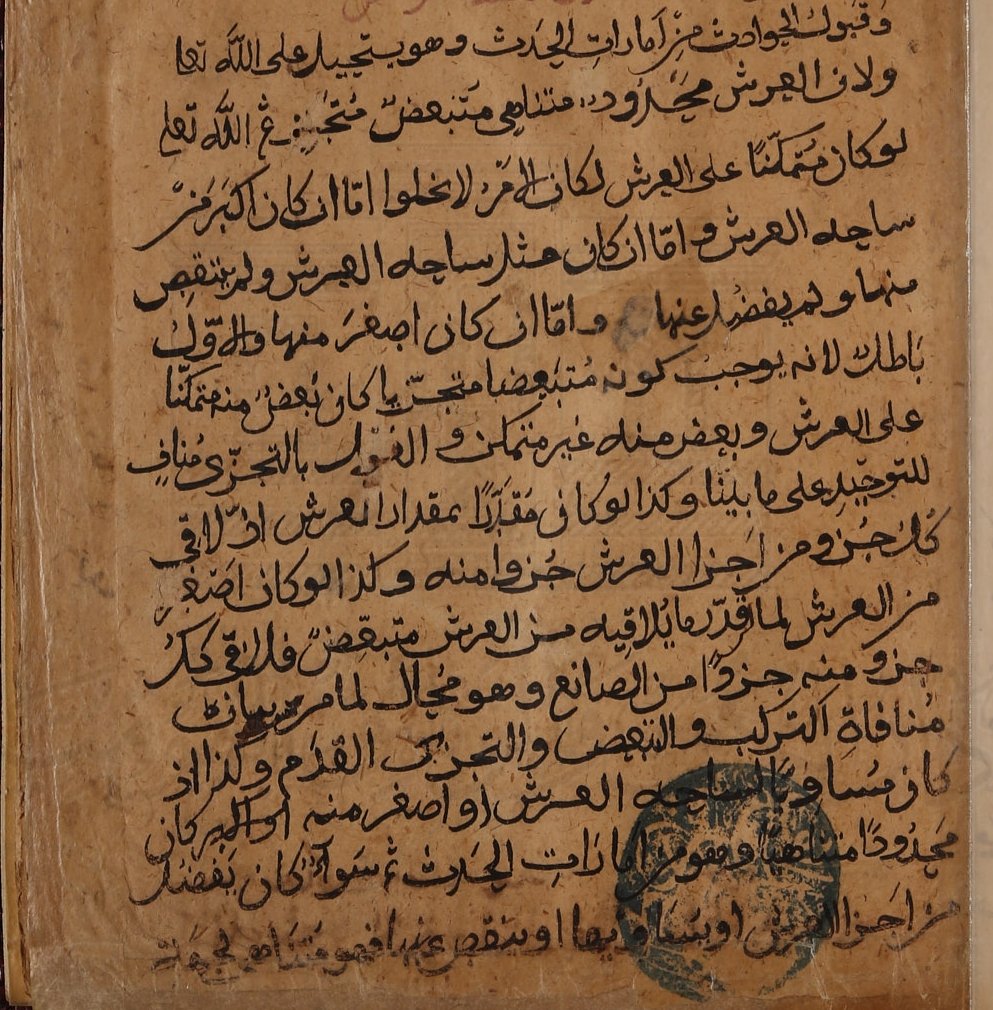 وقبول الحوادث من أمارات الحدث وهو يستحيل على الله تعا
ولان العرش محدود متناهى متبعض متجزئ ثم الله تعا
لو كان متمكنا على العرش لكان الامر لا يخلوا امّا ان كان اكبر من
ساحه العرش و امّا ان كان مثل ساحه العرش ولم ينتقص
منها و لم يفضل عنها و امّا ان كان اصغر منها والاوّل
باطل لانه يوجب كونه متبعضا متجزيا كان بعض منه متمكنا
على العرش وبعض منه غير متمكن و القول بالتجزّى مُنافٍ
للتوحيد على ما بينا وكذا لو كان مقدّرًا بمقدار العرش اذ لاقى
كل جزو من اجزا العرش جزوا منه وكذا لو كان اصغر
من العرش لما قدر ما يُلاقيه من العرش متبعّض فلاقى كل
جزو منه جزوًا من الصانع وهو محال لما مر بيان
مُنافاة التركب والتبعض والتجزى القدم وكذا اذ
كان مساويًا لساحه العرش او اصغر منه او اكبر كان
محدودًا متناهيًا وهو من امارات الحدث ثم سواء كان يفضل
من اجزا العرش او يساويها او ينقص عنها فهو متناه بجهة